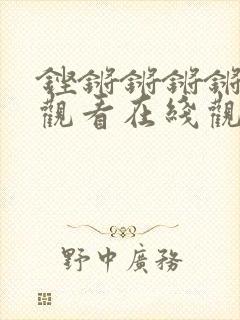 鏗鏘鏘鏘鏘
觀看在綫觀
野中廣務